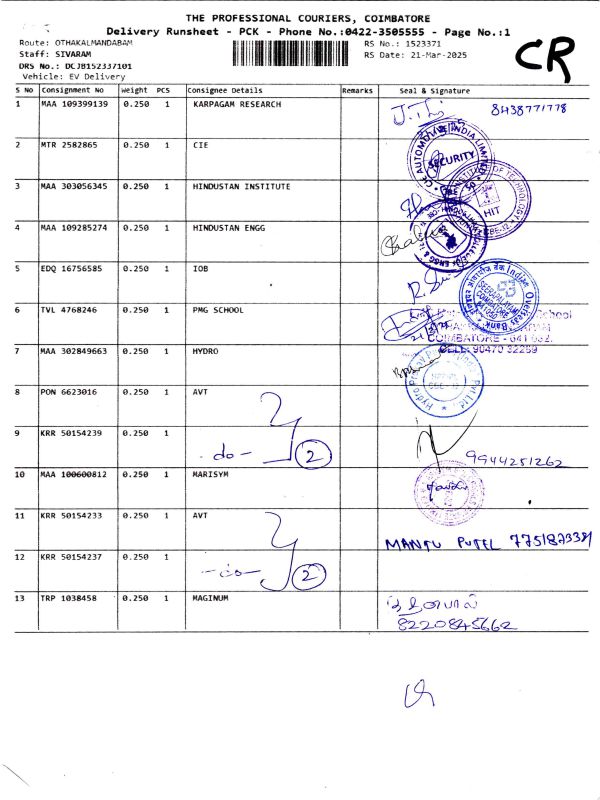 THE PROFESSIONAL COURIERS, COIMBATORE
Delivery Runsheet - PCK - Phone No.:0422-3505555 - Page No.:1
Route: OTHAKALMANDABAM
RS No.: 1523371
Staff: SIVARAM
RS Date: 21-Mar-2025
DRS No.: DCJB152337101
Vehicle: EV Delivery
CR
S No Consignment No Weight PCS Consignee Details Remarks Seal & Signature
1 MAA 109399139 0.250 1 KARPAGAM RESEARCH 8438771778
2 MTR 2582865 0.250 1 CIE
SECURITY
3 MAA 303056345 0.250 1 HINDUSTAN INSTITUTE
HIT
4 MAA 109285274 0.250 1 HINDUSTAN ENGG
5 EDQ 16756585 0.250 1 IOB
Indian Overseas Bank
6 TVL 4768246 0.250 1 PMG SCHOOL
School
COIMBATORE - 641 032.
CELL: 90470 32259
7 MAA 302849663 0.250 1 HYDRO
8 PON 6623016 0.250 1 AVT
9 KRR 50154239 0.250 1
-do- 2
9944251262
10 MAA 100600812 0.250 1 MARISYM
11 KRR 50154233 0.250 1 AVT
MANTU PUTEL
12 KRR 50154237 0.250 1
-do- 2
13 TRP 1038458 0.250 1 MAGINUM
8220845662